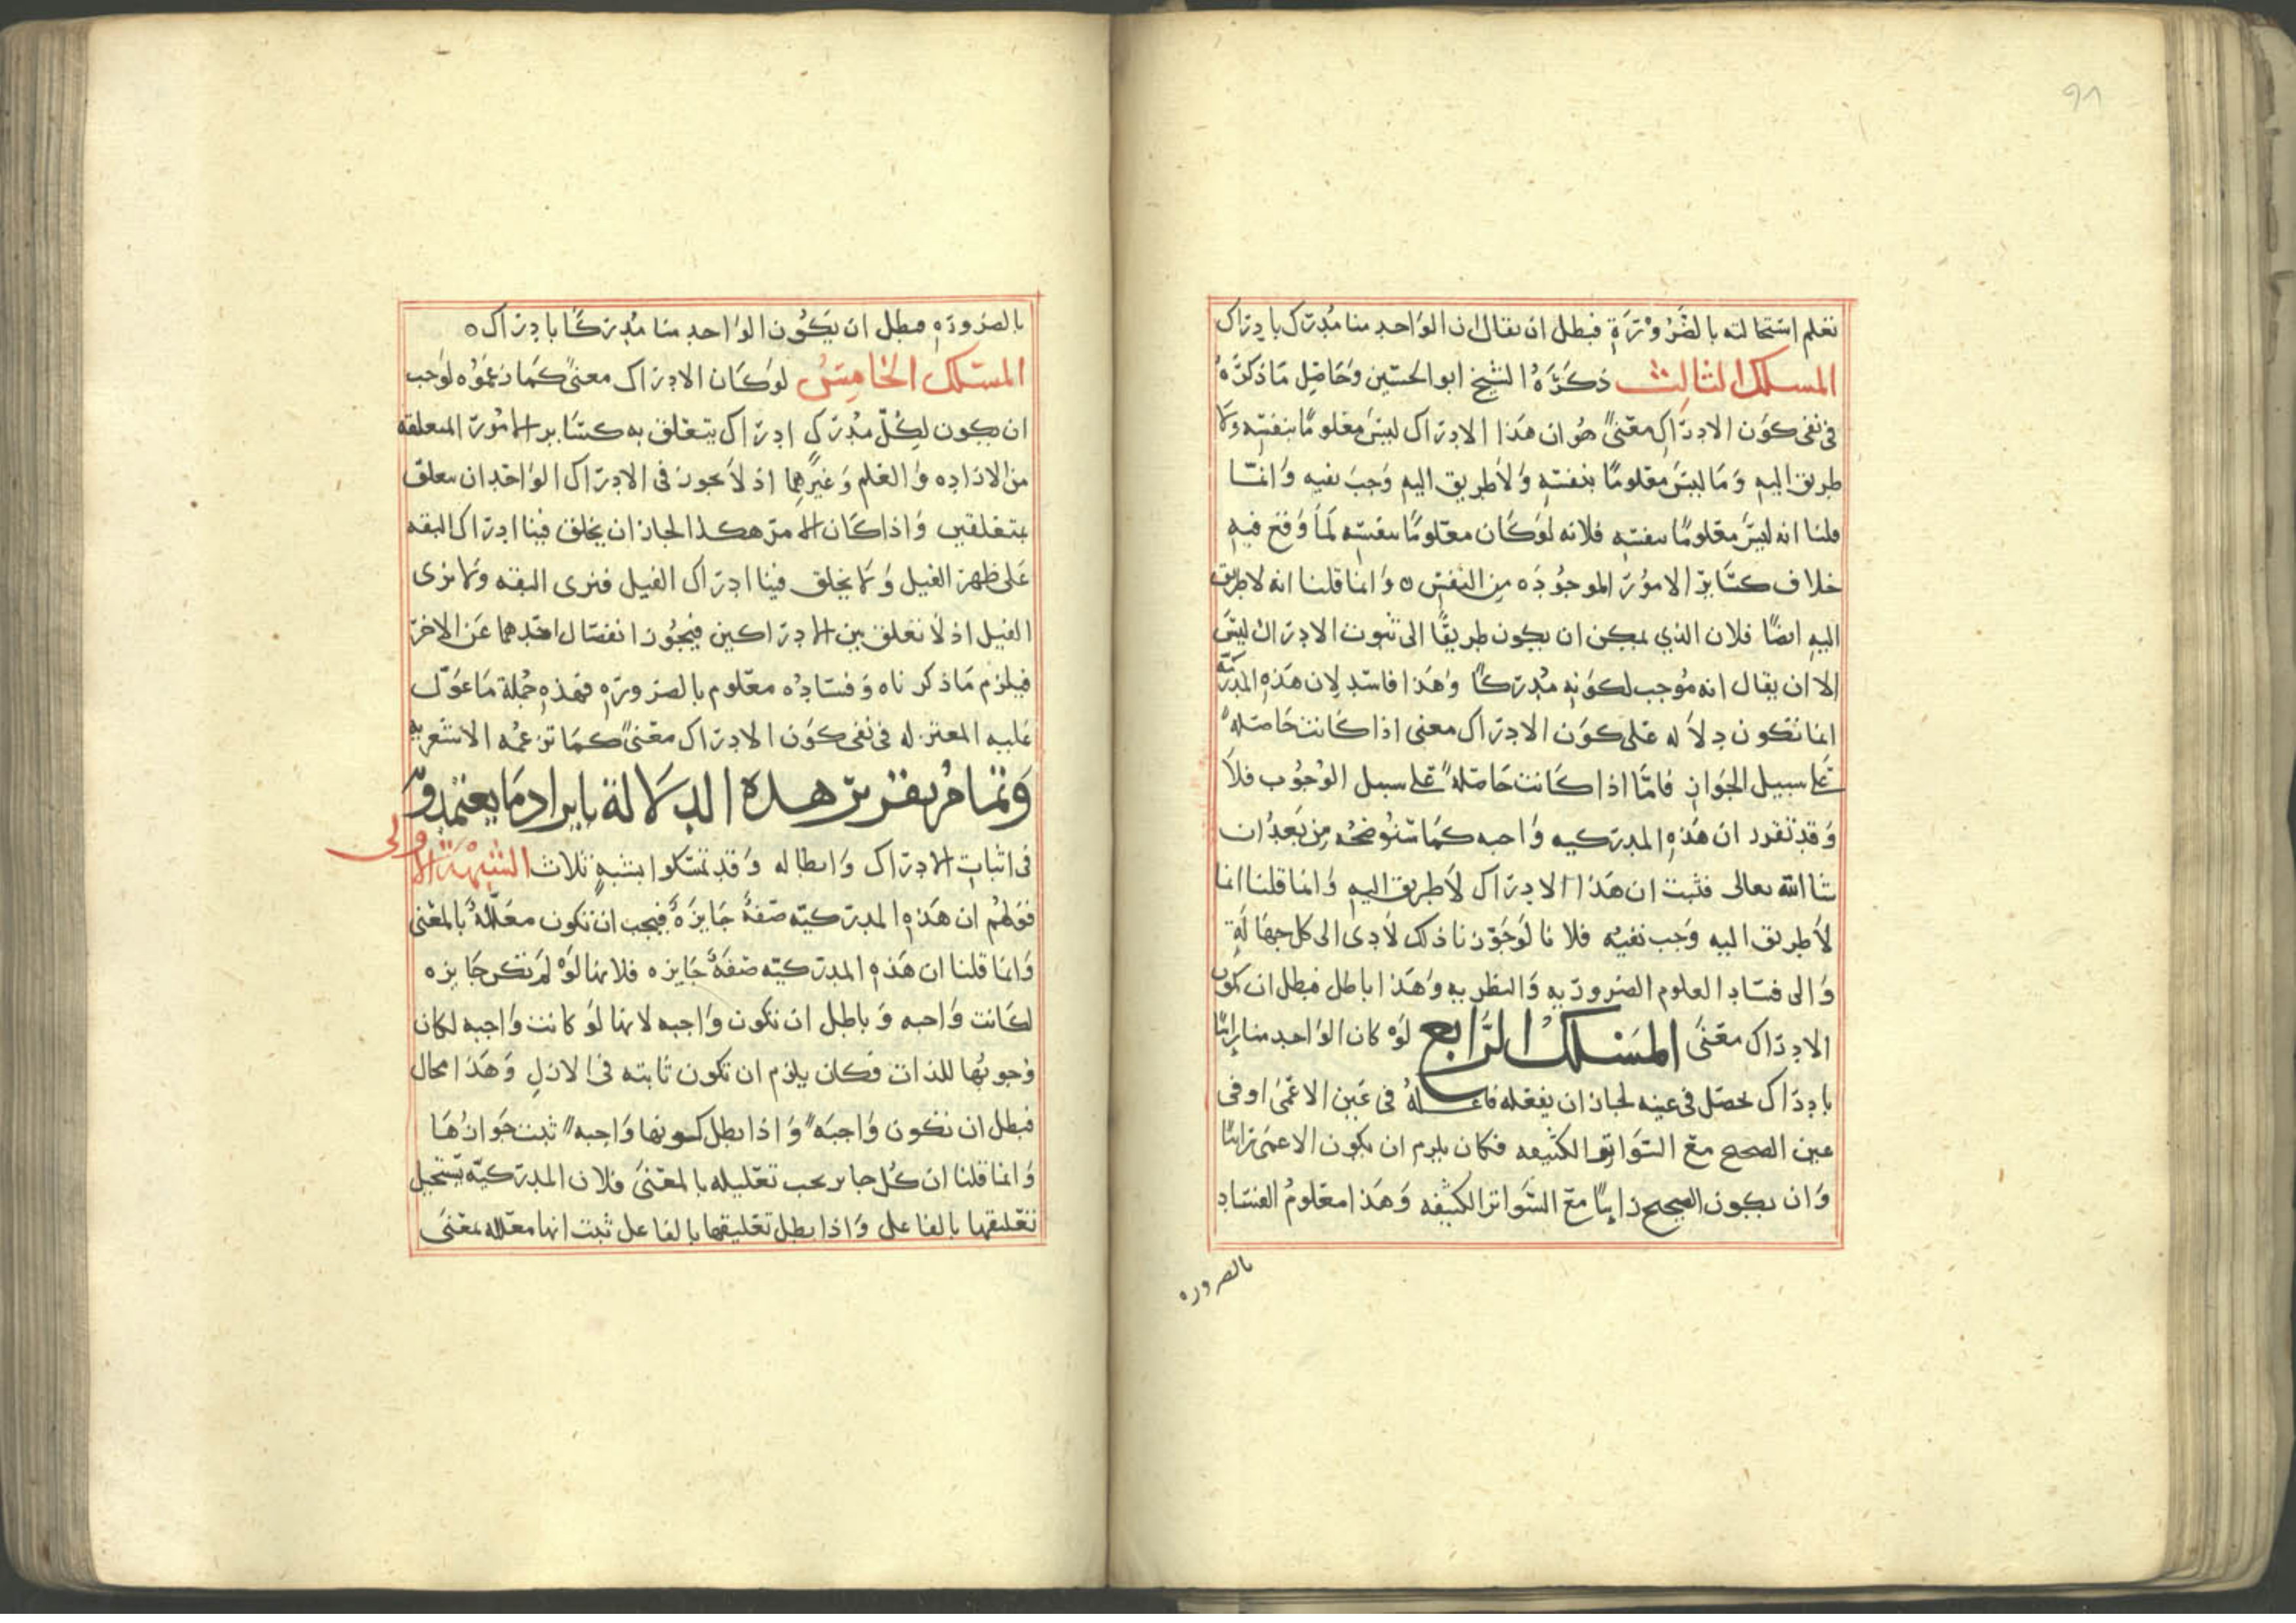 ٩٨
نعلم استحالته بالضَّرُوْرَةِ فبطل ان يقال ان الوَاحد منا مُدرَك بادِراك
المسلك الثالث ذكَرَهُ الشيخ ابو الحسَين وَحَاصِل مَا ذكرَهُ
في نفى كوَن الادرَاك مَعْنىً هُو ان هَذا الادِرَاك ليسَ مَعْلومًا بنفسِه وَلا
طريق اليهِ وَمَا ليسَ مَعْلومًا بنفسِهِ وَلاَ طريق اليهِ وَجبَ نفيه وَانمَّا
قلنا انه ليسَ مَعْلومًا بنفسِه فلانه لوَ كَان معْلومًا بنفسِه لَمَا وَقعَ فيهِ
خلاف كسَايِر الامُور الموجُودَه مِن النفسِ ٥ وَانما قلنا انه لا طريق
اليهِ ايضًا فلان الذي يمكن ان يكون طريقًا الى ثبوت الادِراك ليسَ
الا ان يقال انه مُوجب لكوَنهِ مُدرَكًا وَهَذا فاسَد لان هَذهِ المدركية
انما تكون دِلاَله عَلى كوَن الادِرَاك معنى اذا كَانت حَاصَلهً
عَلى سبيل الجَواز فامَّا اذا كَانت حَاصَلهً عَلى سبيل الوُجُوب فلاَ
وَقد تقرر ان هَذهِ المدركيه وَاجبه كَمَا سَنُوضحُه مِن بَعدُ ان
شا الله تعالى فثبت ان هَذا الادِرَاك لاَ طريق اليهِ وَانما قلنا انما
لاَ طريق اليه وَجب نفيُه فلانا لوَ جَوّزنا ذلك لاَدى الى كل جهَالَةٍ
وَالى فسَادِ العلوم الضروريهِ وَالنظريهِ وَهَذا باطل فبطل ان يكون
الادِرَاك مَعْنىً المَسْلكُ الرَّابع لوَ كان الوَاحد منا رَايًا
بادِرَاك يحصَل في عينِه لجاز ان يفعَله فاعلهُ في عَين الاعْمَىٰ او في
عين الصَحيح معَ السَوَاتِر الكثيفه فكان يلزم ان يكون الاعمَى رَايًا
وَان يكون الصَحيح رَايًا معَ السَواتر الكثيفه وَهَذا معَلومُ الفسَادِ
بالضروره
بالضرورَهِ فبطل ان يَكُون الوَاحد منا مُدرِكًا بادِرَاك ٥
المسَلك الخَامِسُ لوَ كَان الادِرَاك معنىً كَمَا زعَمُوْه لوَجب
ان يكون لِكُلّ مُدرَكٍ ادِرَاك يتعَلق به كسَاير الامُورَ المتعلقه
من الارَادِه وَالعَلم وَغيرهمَا اذ لاَ يجوز في الادِرَاك الوَاحَد ان يتعلق
بمتعَلقين وَاذا كَان الامرَ هكذا لجاز ان يخلق فينا ادِرَاك البقه
عَلى ظهر الفيل وَلا يخلق فينا ادِرَاك الفيل فنرى البقه وَلا نرى
الفيل اذ لاَ تعَلق بين الادِرَاكين فيجُوز انفصَال احَدهما عَن الاخرَ
فيلزم مَا ذكرناه وَفسَادُه معَلوم بالضرورَهِ فهَذهِ جُملة مَا عَوّل
عَليه المعتزله في نفى كوَن الادِرَاك معَنىً كمَا تزعمُه الاشعريهِ
وَتمامُ تقرير هذه الدلالة بايراد مَا يعتمدونه
في اثبات الادِرَاك وَابطاله وَقد تمسَكوا بشبهٍ ثلاث الشبْهَةُ الاولى
قوَلهُم ان هَذهِ المدركيّه صَفةٌ جَايزَةٌ فيجب ان تكون معَلّلةً بالمعَنى
وَانما قلنا ان هَذهِ المدركيّه صَفةٌ جَايزه فلانها لوَ لمَ تكن جَايزه
لكَانت وَاجبه وَباطل ان تكون وَاجبه لانها لوَ كانت وَاجبه لكان
وُجوبُها للذات فكان يلزم ان تكون ثَابته في الازلِ وَهَذا محال
فبطل ان تكون وَاجبَهً وَاذا بطل كونها وَاجبهً ثبت جَوازُهَا
وَانما قلنا ان كُل جايز يجب تعَليله بالمعَنىَ فلان المدركيّه يستحيل
تعَليقها بالفاعل وَاذا بطل تعَليقها بالفاعل ثبت انها معَلله بمعَنىَ